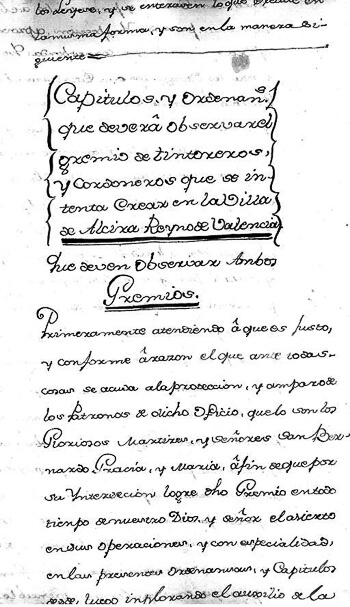 los denseve, y se enteraren lo que
la misma forma, y son en la manera Si-
guiente
Capitulos, y ordenan.s
que deverâ observar el
gremio de tintoreros,
y Cordoneros que se in-
tenta Crear en la Villa
de Alcira Reyno de Valencia
Que deven Observar Ambos
Gremios.
Primeramente atendiendo â que es justo,
y conforme ârazon el que ante todas
cosas se acuda ala proteccion, y amparo de
los Patronos de dicho Oficio, que lo son los
Gloriosos Martires, y señores San Ber-
nardo, Gracia, y Maria, âfin de que por
su Yntercecion logre dho Gremio en todo
tiempo de nuestro Dios, y señor el acierto
en sus operaciones, y con especialidad,
en las presentes Ordenansas, y Capitulos
desde, luego inplorando el auxilio de la